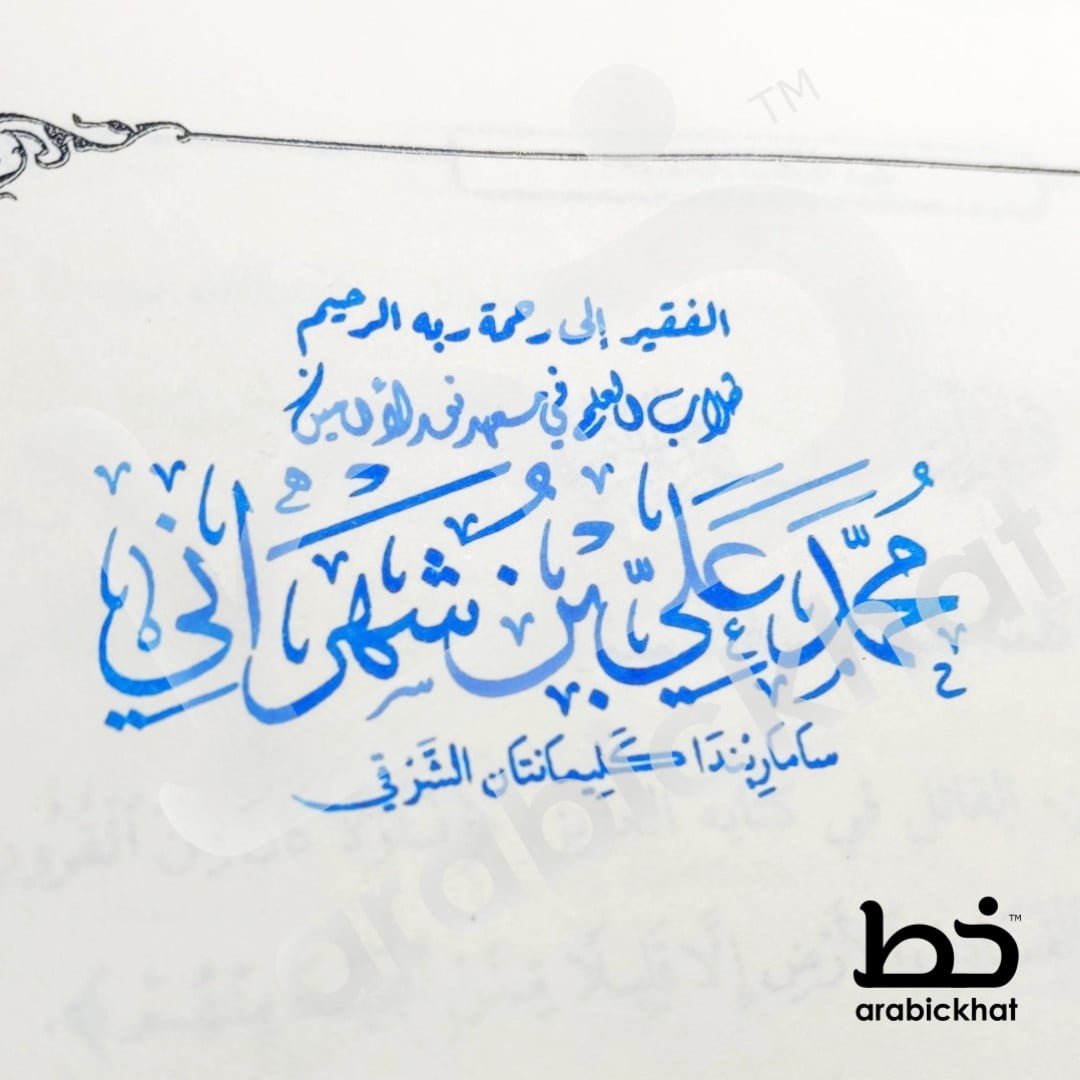 الفقير إلى رحمة ربه الرحيم
طلاب العلم في معهد نور الأمين
مُحَمَّد عَلِيّ بْن شَهْرَانِي
سامارِيْنْدَا كَلِيمانتان الشَّرْقي
خط
TM
arabickhat